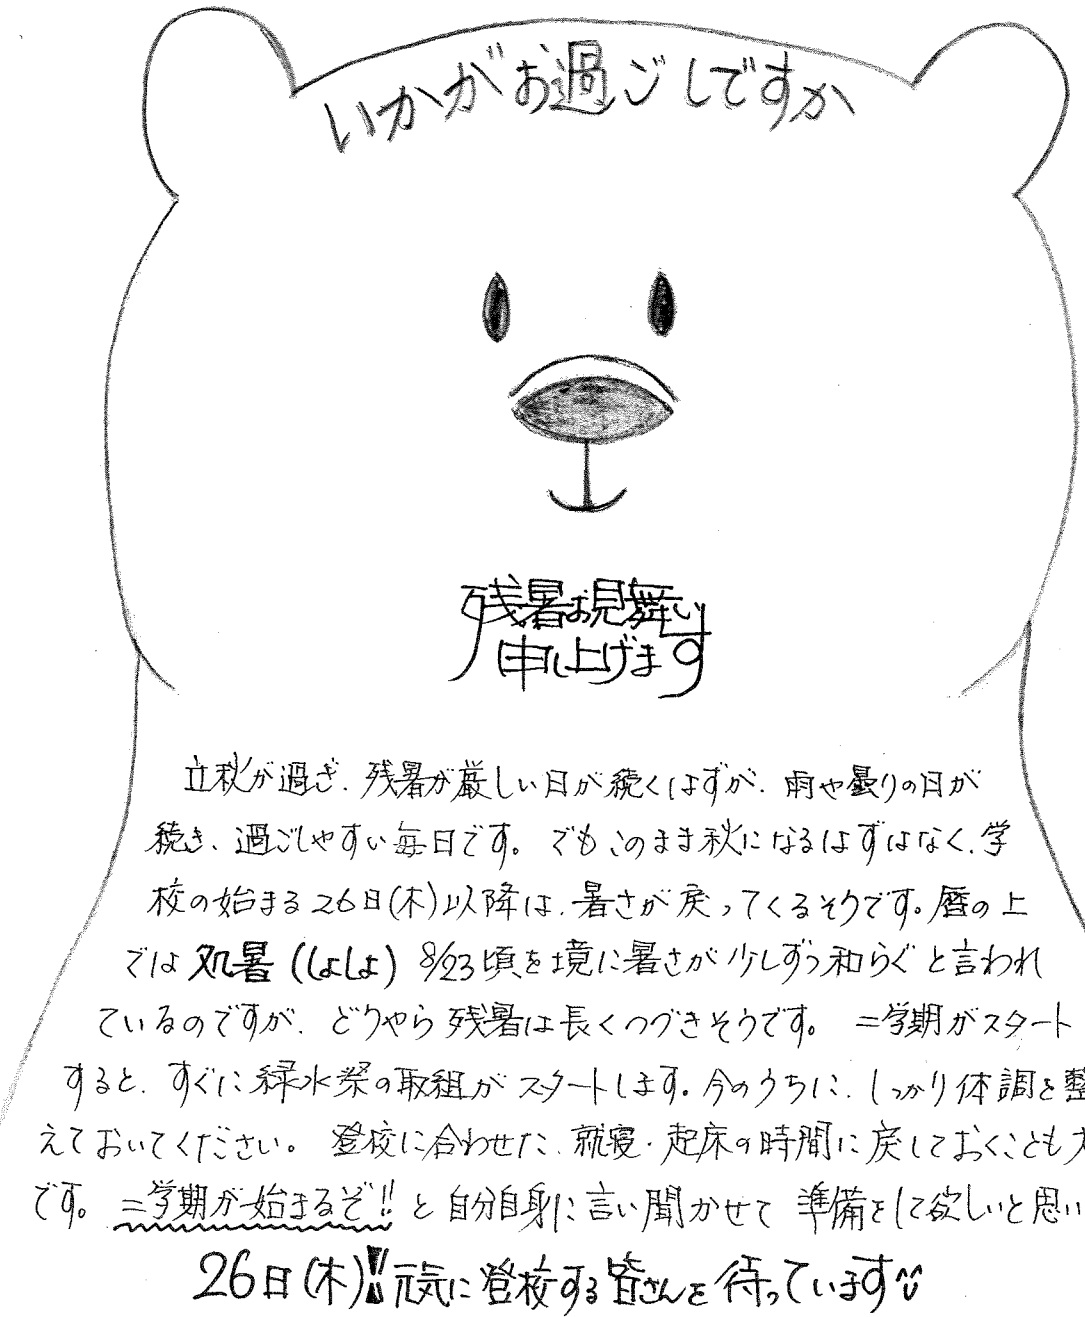 いかがお過ごしですか
残暑お見舞い
申し上げます
立秋が過ぎ、残暑が厳しい日が続くはずが、雨や曇りの日が
続き、過ごしやすい毎日です。でもこのまま秋になるはずはなく、学
校の始まる26日(木)以降は、暑さが戻ってくるそうです。暦の上
では処暑(しょしょ) 8/23頃を境に暑さが少しずつ和らぐと言われ
ているのですが、どうやら残暑は長くつづきそうです。 二学期がスタート
すると、すぐに緑水祭の取組がスタートします。今のうちに、しっかり体調を整
えておいてください。 登校に合わせた、就寝・起床の時間に戻しておくことも大
です。二学期が始まるぞ!!と自分自身に言い聞かせて準備をして欲しいと思い
26日(木)!!元気に登校する皆さんを待っています